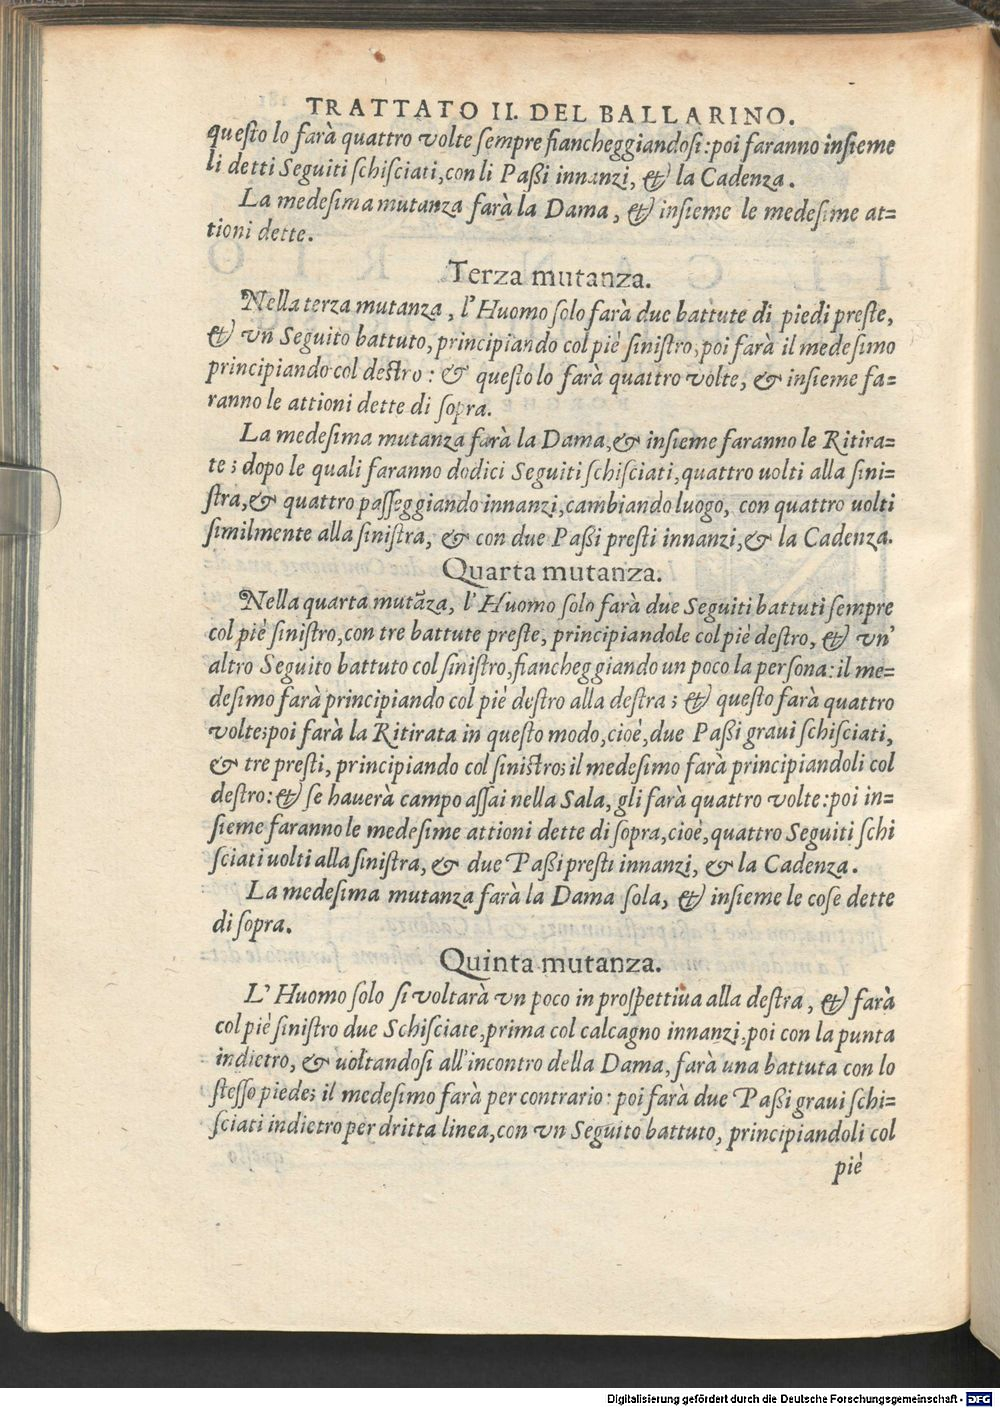 TRATTATO II. DEL BALLARINO.
queſto lo farà quattro volte ſempre fiancheggiandoſi: poi faranno inſieme
li detti Seguiti ſchiſciati, con li Paßi innanzi, & la Cadenza.
La medeſima mutanza farà la Dama, & inſieme le medeſime at=
tioni dette.
Terza mutanza.
Nella terza mutanza, l'Huomo ſolo farà due battute di piedi preſte,
& vn Seguito battuto, principiando col piè ſiniſtro, poi farà il medeſimo
principiando col deſtro: & queſto lo farà quattro volte, & inſieme fa=
ranno le attioni dette di ſopra.
La medeſima mutanza farà la Dama, & inſieme faranno le Ritira=
te; dopo le quali faranno dodici Seguiti ſchiſciati, quattro uolti alla ſini=
ſtra, & quattro paſſeggiando innanzi, cambiando luogo, con quattro uolti
ſimilmente alla ſiniſtra, & con due Paßi preſti innanzi, & la Cadenza.
Quarta mutanza.
Nella quarta mutãza, l'Huomo ſolo farà due Seguiti battuti ſempre
col piè ſiniſtro, con tre battute preſte, principiandole col piè deſtro, & vn'
altro Seguito battuto col ſiniſtro, fiancheggiando un poco la perſona: il me=
deſimo farà principiando col piè deſtro alla deſtra; & queſto farà quattro
volte; poi farà la Ritirata in queſto modo, cioè, due Paßi graui ſchiſciati,
& tre preſti, principiando col ſiniſtro; il medeſimo farà principiandoli col
deſtro: & ſe hauerà campo aſſai nella Sala, gli farà quattro volte: poi in=
ſieme faranno le medeſime attioni dette di ſopra, cioè, quattro Seguiti ſchi
ſciati uolti alla ſiniſtra, & due Paßi preſti innanzi, & la Cadenza.
La medeſima mutanza farà la Dama ſola, & inſieme le coſe dette
di ſopra.
Quinta mutanza.
L'Huomo ſolo ſi voltarà vn poco in proſpettiua alla deſtra, & farà
col piè ſiniſtro due Schiſciate, prima col calcagno innanzi, poi con la punta
indietro, & uoltandoſi all'incontro della Dama, farà una battuta con lo
ſteſſo piede; il medeſimo farà per contrario: poi farà due Paßi graui ſchi=
ſciati indietro per dritta linea, con vn Seguito battuto, principiandoli col
piè
Digitalisierung gefördert durch die Deutsche Forschungsgemeinschaft - DFG